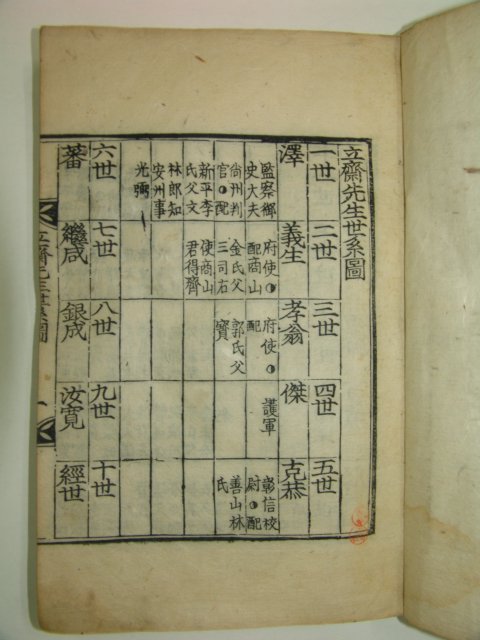 立齋先生世系圖
一世
澤
監察御
史大夫
尙州判
官●配
新平李
氏父文
林郎知
安州事
光弼
二世
義生
府使●
配商山
金氏父
三司右
使商山
君得齊
三世
孝翁
府使●
配
郭氏父
寶
四世
傑
護軍
五世
克恭
彰信校
尉●配
善山林
氏
六世
蕃
七世
繼咸
八世
銀成
九世
汝寬
十世
經世
立齋先生世系圖
一